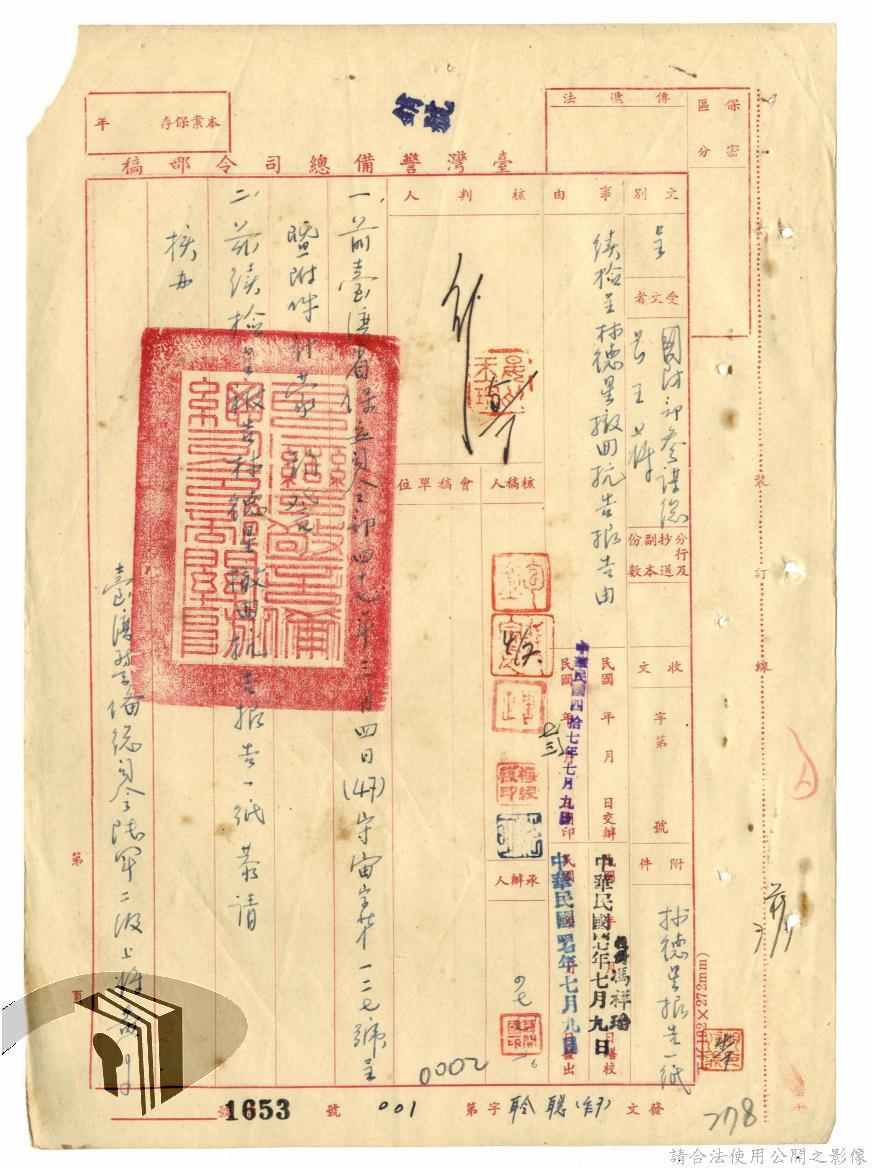 保密區分
傳遞法
銷號
本案保存 年
臺灣警備總司令部稿
文別 呈
受文者 國防部參謀總長王上將
分行及抄送副本份數
收文 字第 號
附件 林德星報告一紙
事由 續檢呈林德星撤回抗告報告由
民國 年 月 日交辦
中華民國四拾七年七月九日
中華民國四七年七月九日
馮祥瑎
中華民國四七年七月九日
核判人
核稿人
會稿單位
承辦人
一、前臺灣省保安司令部四十七年三月四日(47)
字第一二七號呈
暨附件計蒙
二、茲續檢呈報告林德星撤回抗告報告一紙恭請
核办
臺灣警備總司令陸軍二級上將黃
第 頁
裝
訂
線
0002
發文 字第 001 號
1653
778
請合法使用公開之影像